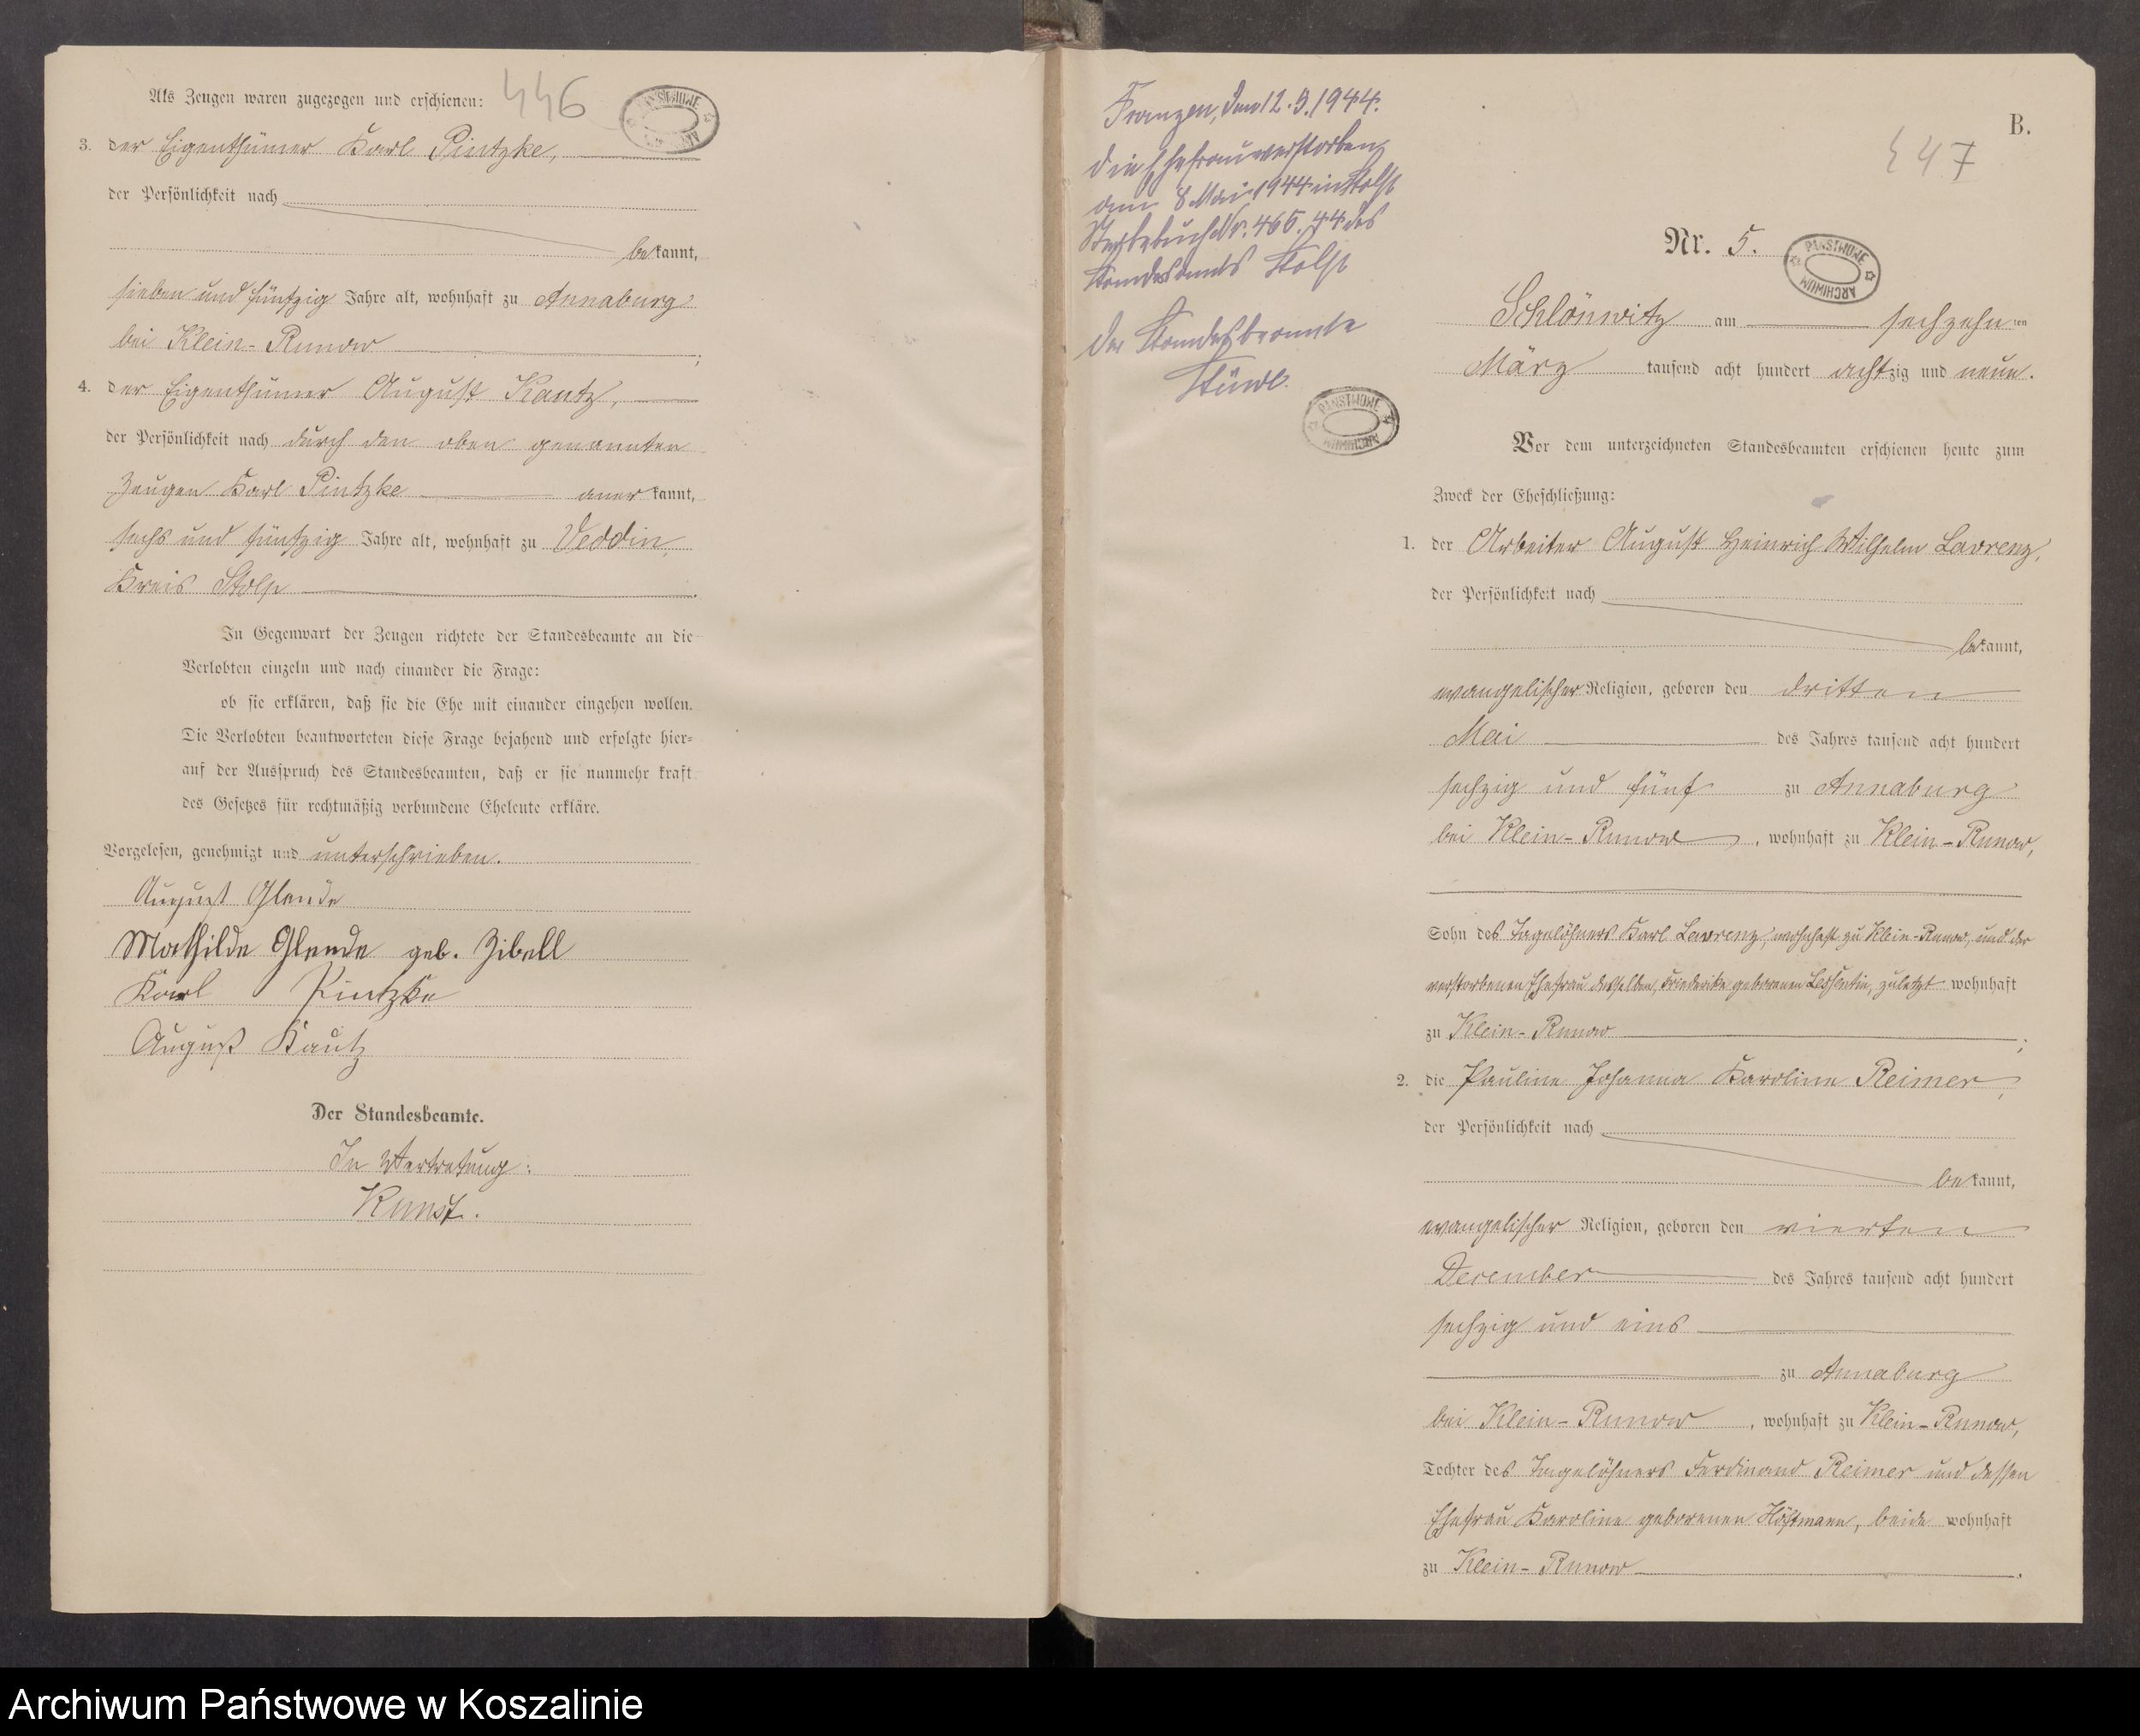 446
Als Zeugen waren zugezogen und erschienen:
3. der Eigenthümer Karl Pintzke,
der Persönlichkeit nach
bekannt,
sieben und fünfzig Jahre alt, wohnhaft zu Annaburg
bei Klein-Runow ;
4. der Eigenthümer August Kautz,
der Persönlichkeit nach durch den oben genannten
Zeugen Karl Pintzke anerkannt,
sechs und fünfzig Jahre alt, wohnhaft zu Veddin,
Kreis Stolp .
In Gegenwart der Zeugen richtete der Standesbeamte an die
Verlobten einzeln und nach einander die Frage:
ob sie erklären, daß sie die Ehe mit einander eingehen wollen.
Die Verlobten beantworteten diese Frage bejahend und erfolgte hier=
auf der Ausspruch des Standesbeamten, daß er sie nunmehr kraft
des Gesetzes für rechtmäßig verbundene Eheleute erkläre.
Vorgelesen, genehmigt und unterschrieben.
August Glende
Mathilde Glende geb. Zibell
Karl Pintzke
August Kautz
Der Standesbeamte.
In Vertretung:
Kunst.
Franzen, den 12.5.1944.
Die Ehefrau verstorben
am 8 Mai 1944 in Stolp
Sterbebuch Nr. 465.44 des
Standesamts Stolp
Der Standesbeamte
B.
447
Nr. 5.
PAŃSTWOWE ARCHIWUM
Schlönwitz am sechzehnten
März tausend acht hundert achtzig und neun.
Vor dem unterzeichneten Standesbeamten erschienen heute zum
Zweck der Eheschließung:
1. der Arbeiter August Heinrich Wilhelm Lavrenz,
der Persönlichkeit nach
bekannt,
evangelischer Religion, geboren den dritten
Mai des Jahres tausend acht hundert
sechzig und fünf zu Annaburg
bei Klein-Runow, wohnhaft zu Klein-Runow,
Sohn des Tagelöhners Karl Lavrenz, wohnhaft zu Klein-Runow, und der
verstorbenen Ehefrau desselben, Friederike geborenen zuletzt wohnhaft
zu Klein-Runow ;
2. die Pauline Johanna Karoline Reimer,
der Persönlichkeit nach
bekannt,
evangelischer Religion, geboren den vierten
December des Jahres tausend acht hundert
sechzig und eins
zu Annaburg
bei Klein-Runow, wohnhaft zu Klein-Runow,
Tochter des Tagelöhners Ferdinand Reimer und dessen
Ehefrau Karoline geborenen beide wohnhaft
zu Klein-Runow .
Archiwum Państwowe w Koszalinie